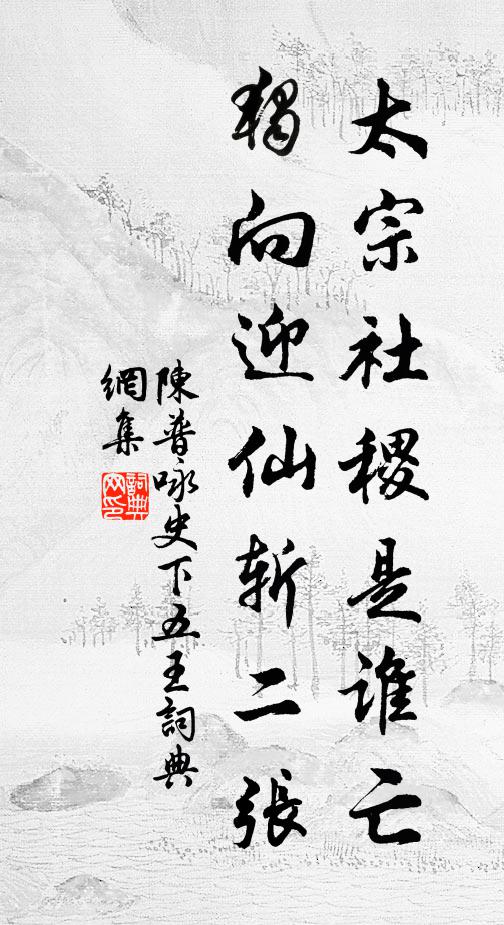 太宗社稷是誰亡
獨向迎仙斬二張
陳普咏史下五王詞典
網集
詞典
网印